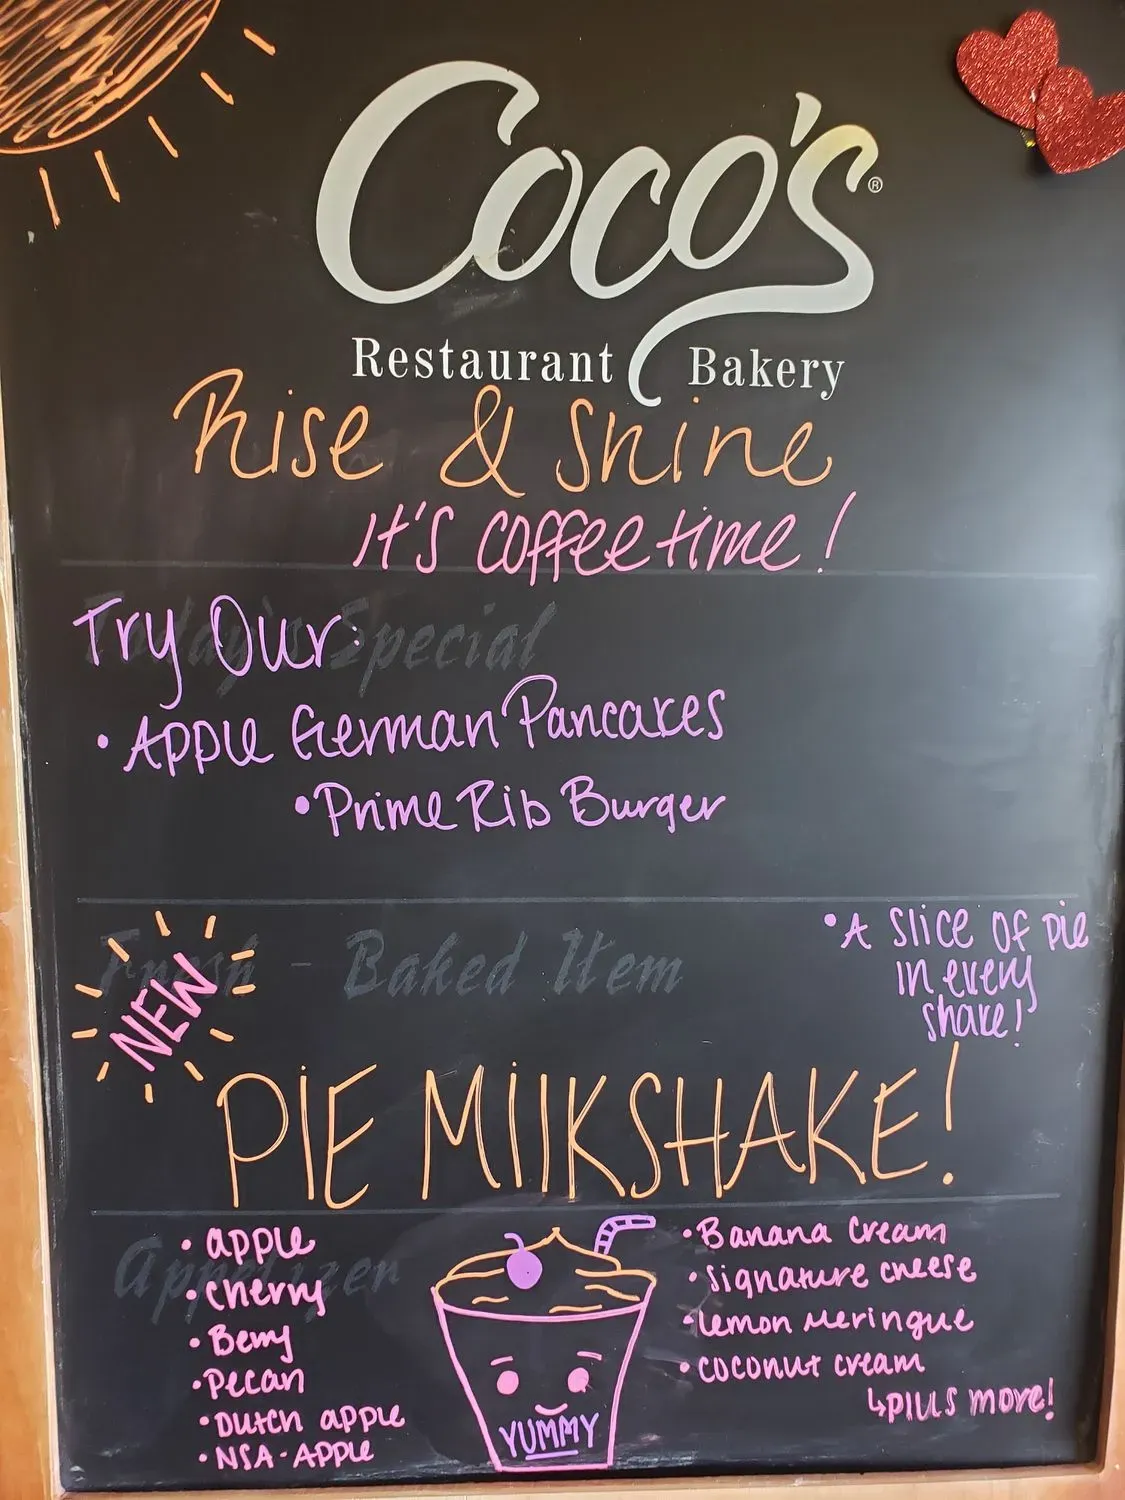 Coco's®
Restaurant Bakery
Rise & Shine
It's coffee time!
Today's Special
Try Our:
• Apple German Pancakes
• Prime Rib Burger
Fresh - Baked Item
NEW
• A slice of pie
in every
shake!
PIE MilkSHAKE!
Appetizer
• apple
• cherry
• Berry
• Pecan
• Dutch apple
• NSA-APPle
YUMMY
• Banana Cream
• signature cheese
• lemon Meringue
• coconut cream
↳plus more!